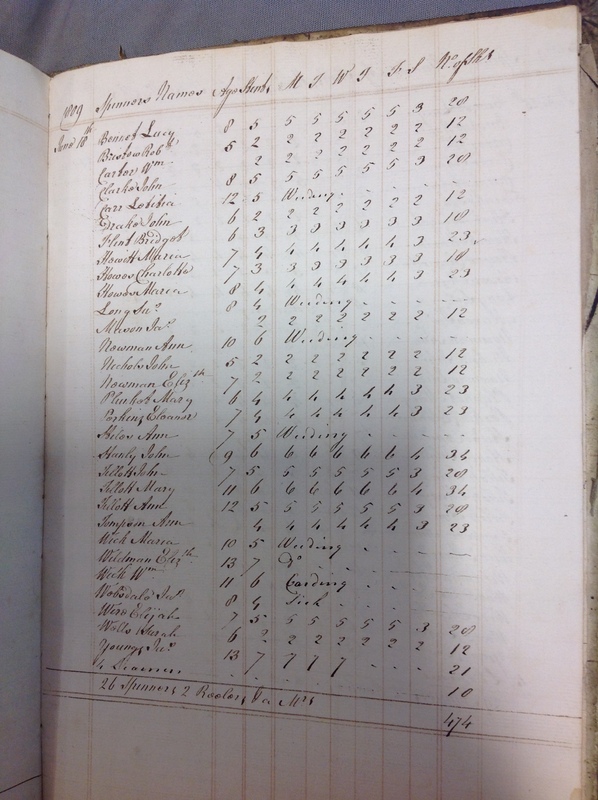 1809 Spinners Names Age Stint M T W T F S No. of Sks
June 18th Bennet Lucy 8 5 5 5 5 5 5 3 28
Bristow Robt 5 2 2 2 2 2 2 2 12
Carter Wm 2 2 2 2 2 2 2 12
Clarke John 8 5 5 5 5 5 5 3 28
Carr 12 5 Weeding - - - -
Drake John 6 2 2 2 2 2 2 2 12
Flint Bridget 6 3 3 3 3 3 3 3 18
Howitt Maria 7 4 4 4 4 4 4 3 23
Howes Charlotte 7 3 3 3 3 3 3 3 18
Howes Maria 8 4 4 4 4 4 4 3 23
Long Jas 8 4 Weeding - - - -
Mason Jas 2 2 2 2 2 2 2 12
Newman Ann 10 6 Weeding - - - -
Nichols John 5 2 2 2 2 2 2 2 12
Newman Elizth 7 2 2 2 2 2 2 2 12
Plunket Mary 6 4 4 4 4 4 4 3 23
Perkins Eleanor 7 4 4 4 4 4 4 3 23
Stiles Ann 7 5 Weeding - - - -
Stanly John 9 6 6 6 6 6 6 4 34
Tillott John 7 5 5 5 5 5 5 3 28
Tillott Mary 11 6 6 6 6 6 6 4 34
Tillott Ann 12 5 5 5 5 5 5 3 28
Timpson Ann 4 4 4 4 4 4 3 23
Wick Maria 10 5 Weeding - - - -
Wildman Elizth 13 7 Do - - - -
Wick Wm 11 6 Carding - - - -
Jas 8 4 Sick - - - -
Wire Elijah 7 5 5 5 5 5 5 3 28
Wells Sarah 6 2 2 2 2 2 2 2 12
Young Jas 13 7 7 7 7 - - - 21
4 Learners - - - - - - - - 10
26 Spinners 2 Reelers 474